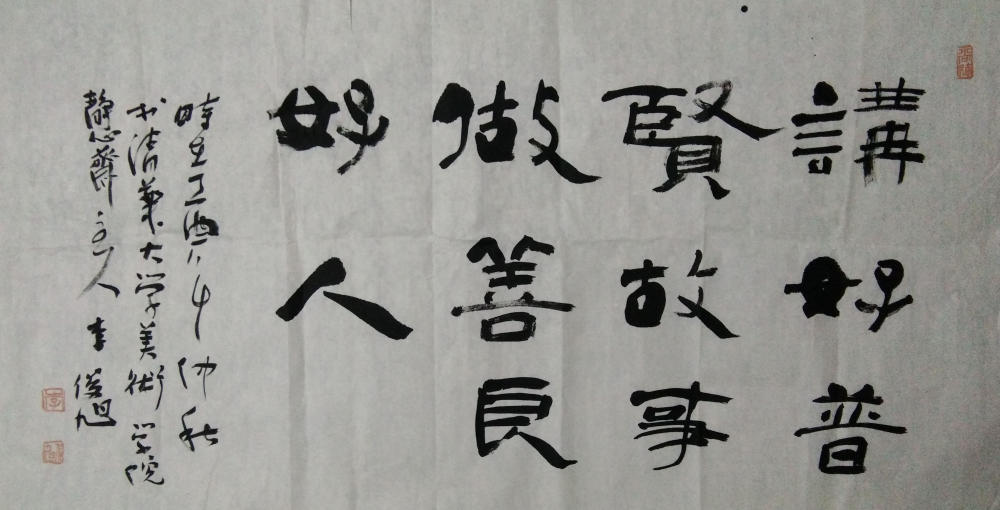 講好普
賢故事
做善良
好人
時在丁酉年仲秋
於清華大學美術學院
靜心齋主人 李俊旭